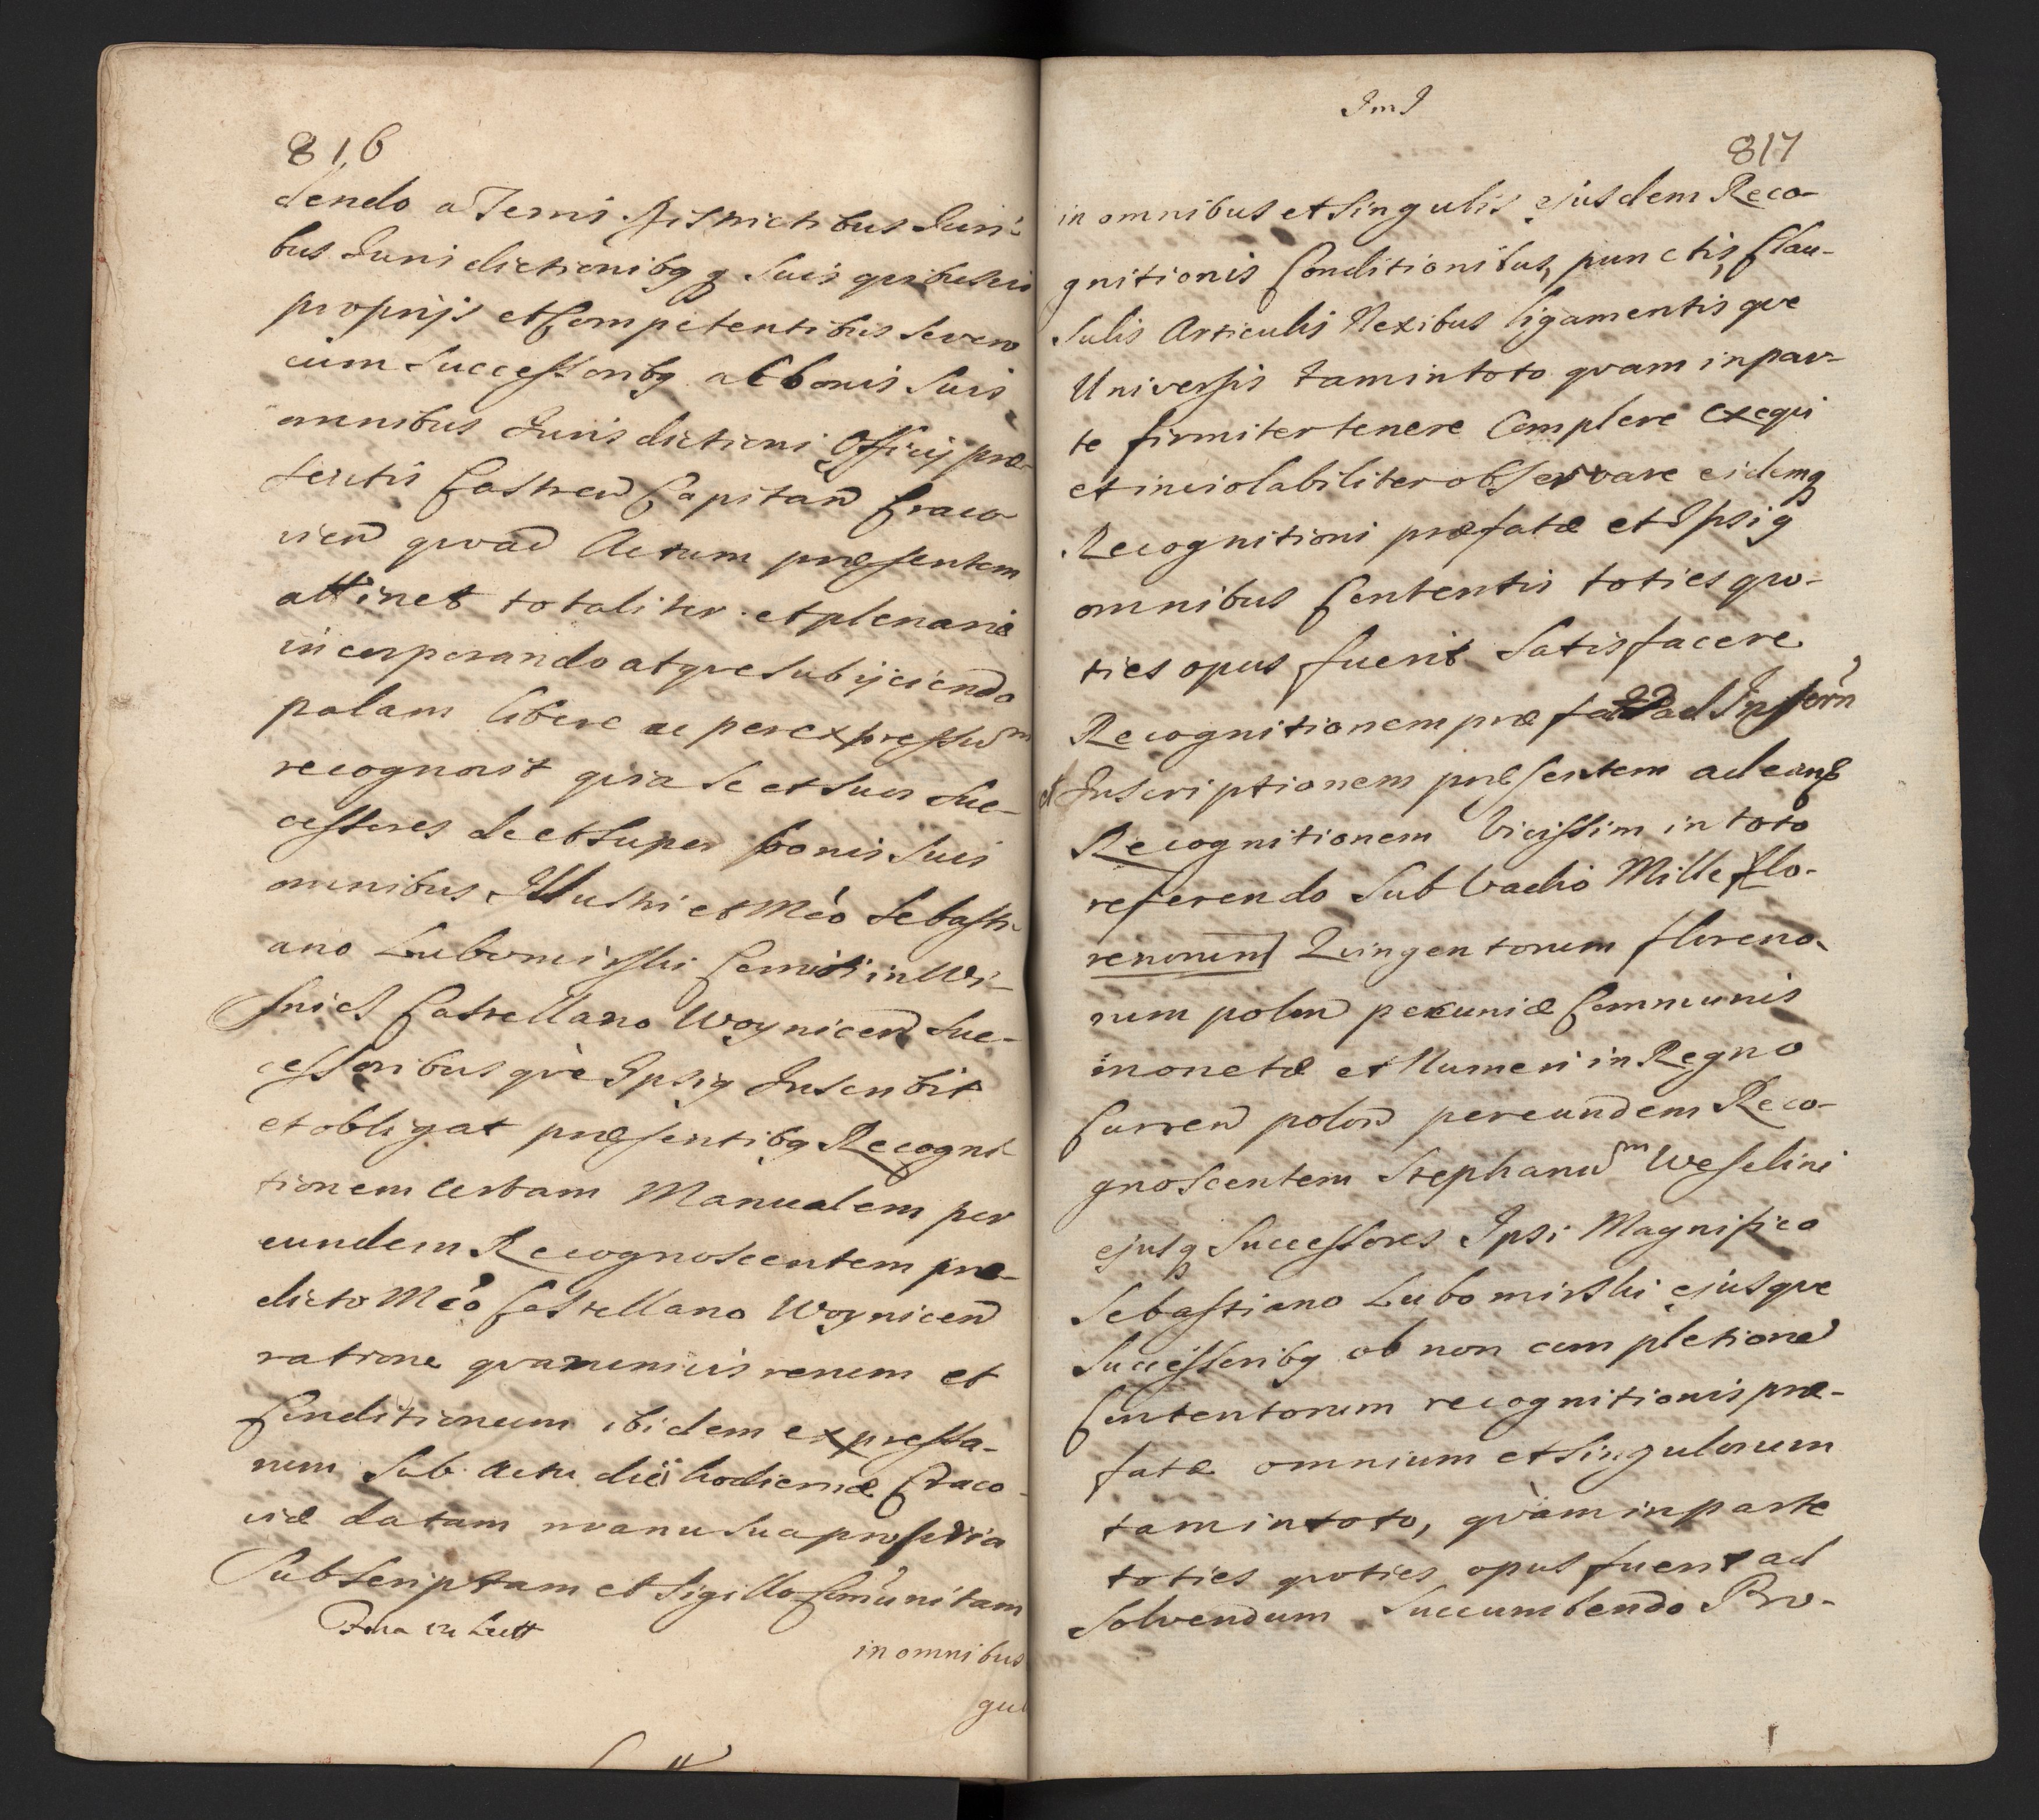 816
dendo a Terris Districtibus Juri-
bus Jurisdictionibq q suis quibusvis
proprijs et Competentibus severo
cum Successoribq ac bonis suis
omnibus Jurisdictioni Officij præ-
sentis Castren Capitan Craco
vien quoad Actum præsentem
attinet totaliter et plenarie
incorporando atque subijciendo
palam libere ac per expressum
recognovit quia se et suos Suc-
cessores de et super bonis suis
omnibus Illustri et Mco Sebasti
ano Lubomirski Comiti in Wi-
snicz Castellano Woynicen Suc-
cessoribusque Ipsiq Inscribit
et obligat præsentibq Recogni
tionem certam Manualem per
eundem Recognoscentem præ-
dicto Mco Castellano Woynicen
ratione quarumvis rerum et
Conditionum ibidem expressa-
rum sub actu diei hodiernæ Craco
viæ datam manu sua propria
Subscriptam et Sigillo Comunitam
in omnibus
gul
ImI
817
in omnibus et Singulis ejusdem Reco-
gnitionis Conditionibus, punctis, Clau-
sulis Articulis Nexibus ligamentisque
Universis tam in toto quam in par-
te firmiter tenere Complere exequi
et inviolabiliter observare eidemq
Recognitioni præfatæ et Ipsiq
omnibus Contentis toties quo-
ties opus fuerit Satisfacere
Recognitionem præ ad
et Inscriptionem præsentem ad eand
Recognitionem Vicissim in toto
referendo Sub Vadio Mille flo-
renorum Quingentorum floreno-
rum polon pecuniæ Communis
monetæ et Numeri in Regno
Curren polon per eundem Reco-
gnoscentem Stephanum Weselini
ejusq Successores Ipsi Magnifico
Sebastiano Lubomirski ejusque
Successoribq ob non completione
Contentorum recognitionis præ-
fatæ omnium et Singulorum
tam in toto, quàm in parte
toties quoties opus fuerit ad
Solvendum Succumbendo Pro-